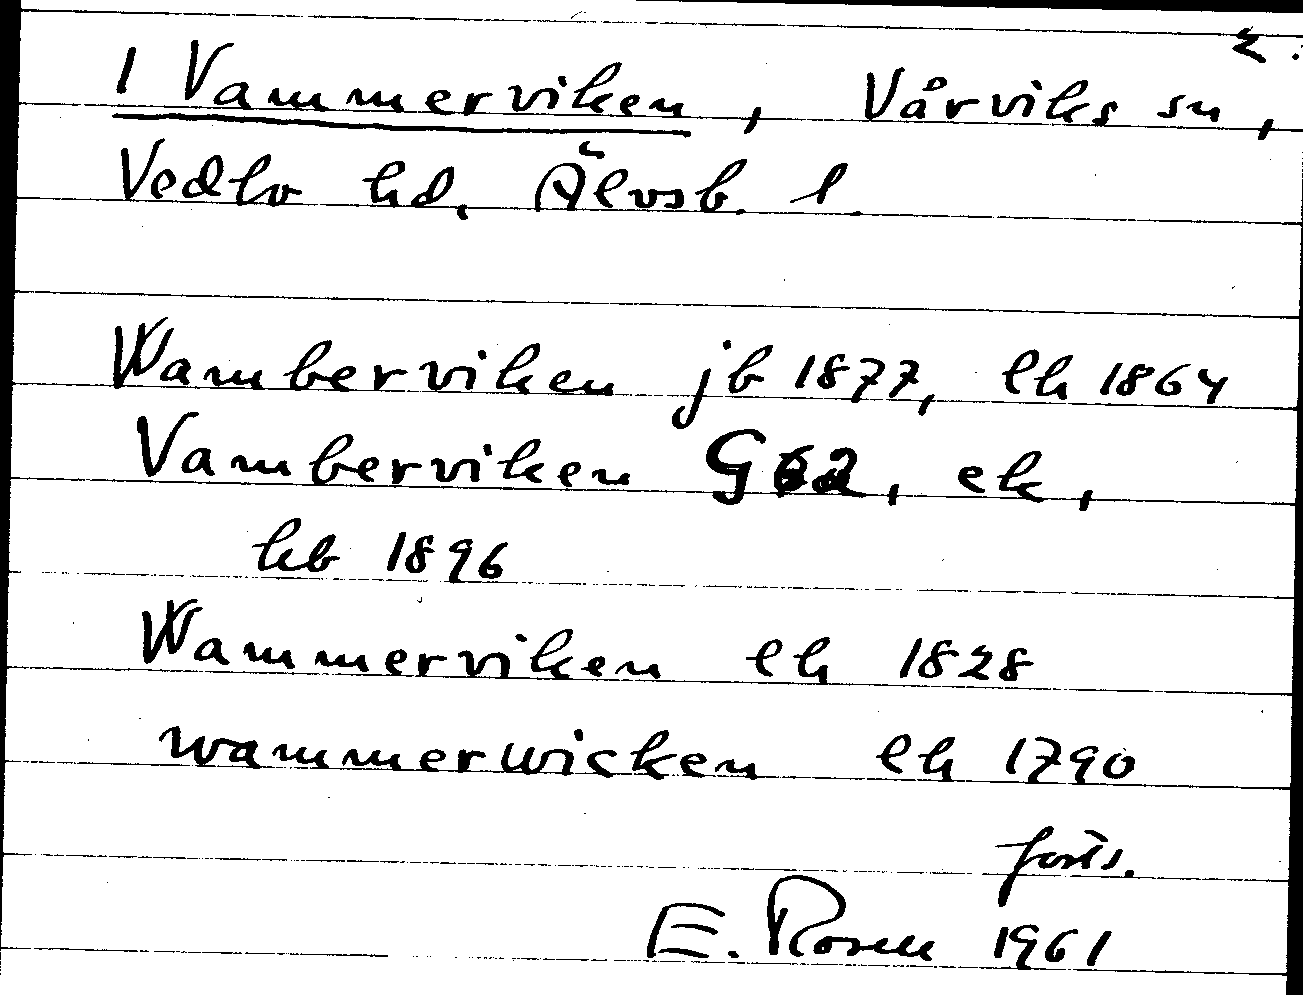 2.
1 Vammerviken, Vårviks sn,
Vedbo hd, Älvsb. l.
Wamberviken jb 1877, lh 1864
Vamberviken G62, ek,
hb 1896
Wammerviken lh 1828
wammerwicken lh 1790
forts.
E. Rosell 1961